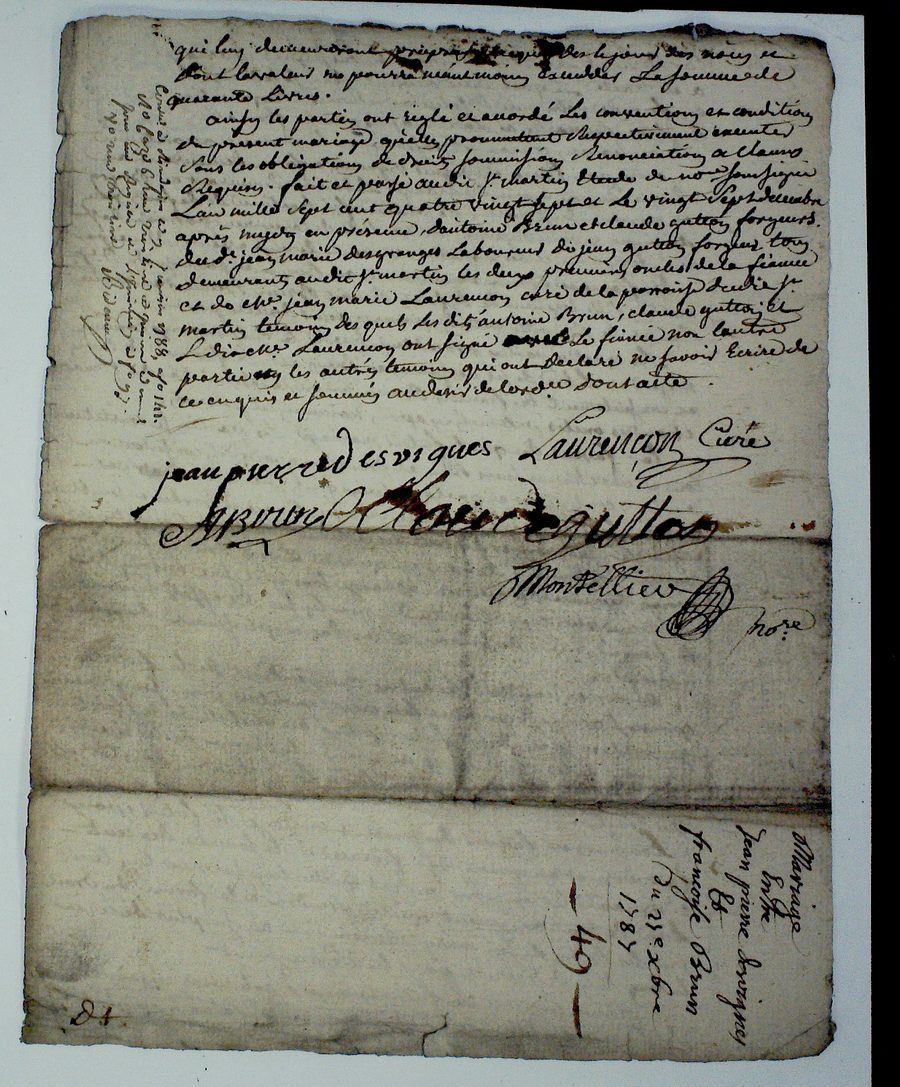 qui luy demeureront propres acquis des le jour des noces et
dont la valeur ne pourra neantmoins exceder la somme de
quarante Livres.
ainsy les parties ont reglé et accordé les conventions et condition
du present mariage qu'elles promettent respectivement executer
sous les obligations de droit, soummission, Renonciation et clauses
Requises. fait et passé audit st martin Etude de nore soussigné
L'an mille sept cent quatre vingt sept et le vingt sept decembre
après midy en presence d'antoine Brun et claude gutton forgeurs
du dt. jean marie desgranges Laboureur dis jean gutton forgeur tous
demeurants audit st. martin les deux premiers oncles de la fiancée
et de Me. jean marie Laurençon curé de la parroisse dudit st
martin temoins des quels les dits antoine Brun, claude gutton et
L dit Me. Laurençon ont signé avec le fiancé non l'autre
partie ny les autres temoins qui ont declaré ne savoir Ecrire de
ce enquis et sommés au desir de l'ordce. dont acte.
jean pierre desvignes Laurençon Curé
ABrun Claude gutton
Montellier nore.
1788
Mariage
Entre
Jean pierre desvignes
Et
françoise Brun
Du 27e xbre
1787
— 49 —